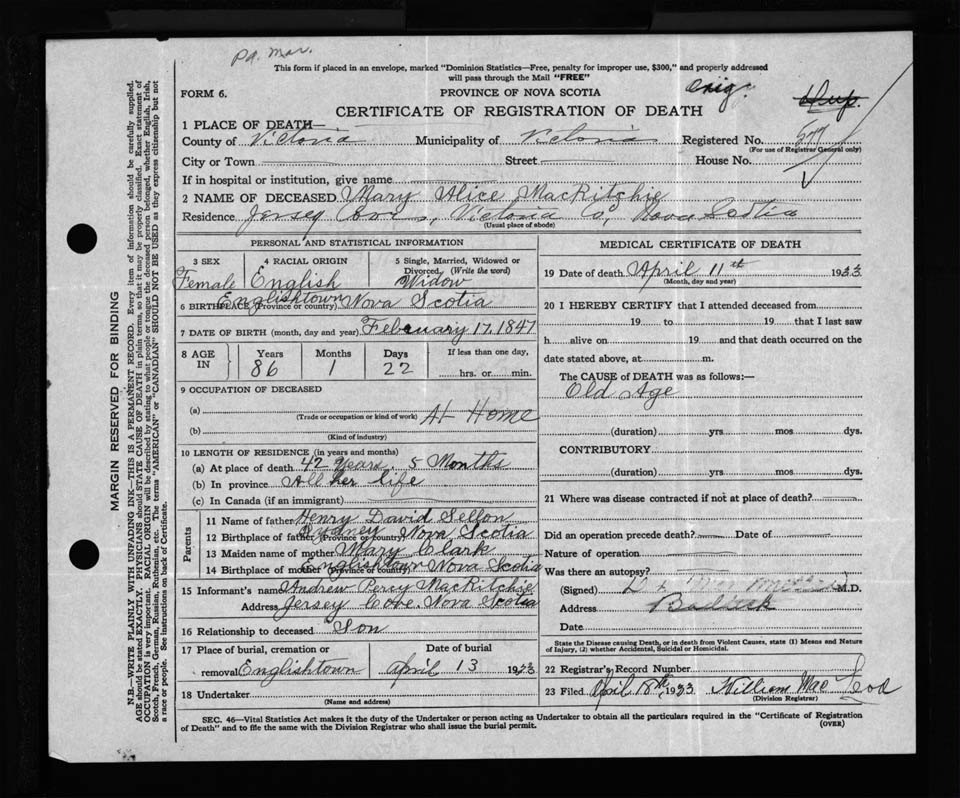 Pd. Mar.
This form if placed in an envelope, marked "Dominion Statistics—Free, penalty for improper use, $300," and properly addressed
will pass through the Mail "FREE"
FORM 6.
PROVINCE OF NOVA SCOTIA
Orig.
Dup.
CERTIFICATE OF REGISTRATION OF DEATH
1 PLACE OF DEATH—
County of Victoria Municipality of Victoria Registered No. 577
(For use of Registrar General only)
City or Town Street House No.
If in hospital or institution, give name
2 NAME OF DECEASED Mary Alice MacRitchie
Residence Jersey Cove, Victoria Co, Nova Scotia
(Usual place of abode)
PERSONAL AND STATISTICAL INFORMATION
3 SEX 4 RACIAL ORIGIN 5 Single, Married, Widowed or Divorced (Write the word)
Female English Widow
6 BIRTHPLACE (Province or country) Englishtown Nova Scotia
7 DATE OF BIRTH (month, day and year) February 17, 1847
8 AGE IN Years Months Days If less than one day,
86 1 22 hrs. or min.
9 OCCUPATION OF DECEASED
(a) At Home
(Trade or occupation or kind of work)
(b)
(Kind of industry)
10 LENGTH OF RESIDENCE (in years and months)
(a) At place of death 42 Years. 5 Months
(b) In province All her life
(c) In Canada (if an immigrant)
Parents
11 Name of father Henry David Sellon
12 Birthplace of father (Province or country) Sydney Nova Scotia
13 Maiden name of mother Mary Clark
14 Birthplace of mother (Province or country) Englishtown Nova Scotia
15 Informant's name Andrew Percy MacRitchie
Address Jersey Cove. Nova Scotia
16 Relationship to deceased Son
17 Place of burial, cremation or Date of burial
removal Englishtown April 13 1933
18 Undertaker
(Name and address)
MEDICAL CERTIFICATE OF DEATH
19 Date of death April 11th 1933
(Month, day and year)
20 I HEREBY CERTIFY that I attended deceased from
19 to 19 that I last saw
h alive on 19 and that death occurred on the
date stated above, at m.
The CAUSE of DEATH was as follows:—
Old Age
(duration) yrs mos dys.
CONTRIBUTORY
(duration) yrs mos dys.
21 Where was disease contracted if not at place of death?
Did an operation precede death? Date of
Nature of operation
Was there an autopsy?
(Signed) M.D.
Address Baddeck
Date
State the Disease causing Death, or in death from Violent Causes, state (1) Means and Nature
of Injury, (2) whether Accidental, Suicidal or Homicidal.
22 Registrar's Record Number
23 Filed April 18th 1933 William MacLeod
(Division Registrar)
SEC. 46—Vital Statistics Act makes it the duty of the Undertaker or person acting as Undertaker to obtain all the particulars required in the "Certificate of Registration
of Death" and to file the same with the Division Registrar who shall issue the burial permit.
(OVER)
MARGIN RESERVED FOR BINDING
N.B.—WRITE PLAINLY WITH UNFADING INK—THIS IS A PERMANENT RECORD. Every item of information should be carefully supplied.
AGE should be stated EXACTLY. PHYSICIANS should STATE CAUSE OF DEATH in plain terms, so that it may be properly classified. Exact statement of
OCCUPATION is very important. RACIAL ORIGIN will be described by stating to what people or tongue the deceased person belonged, whether English, Irish,
Scotch, French, German, Russian, Ruthenian, etc. The terms "AMERICAN" or "CANADIAN" SHOULD NOT BE USED as they express citizenship but not
a race or people. See instructions on back of Certificate.